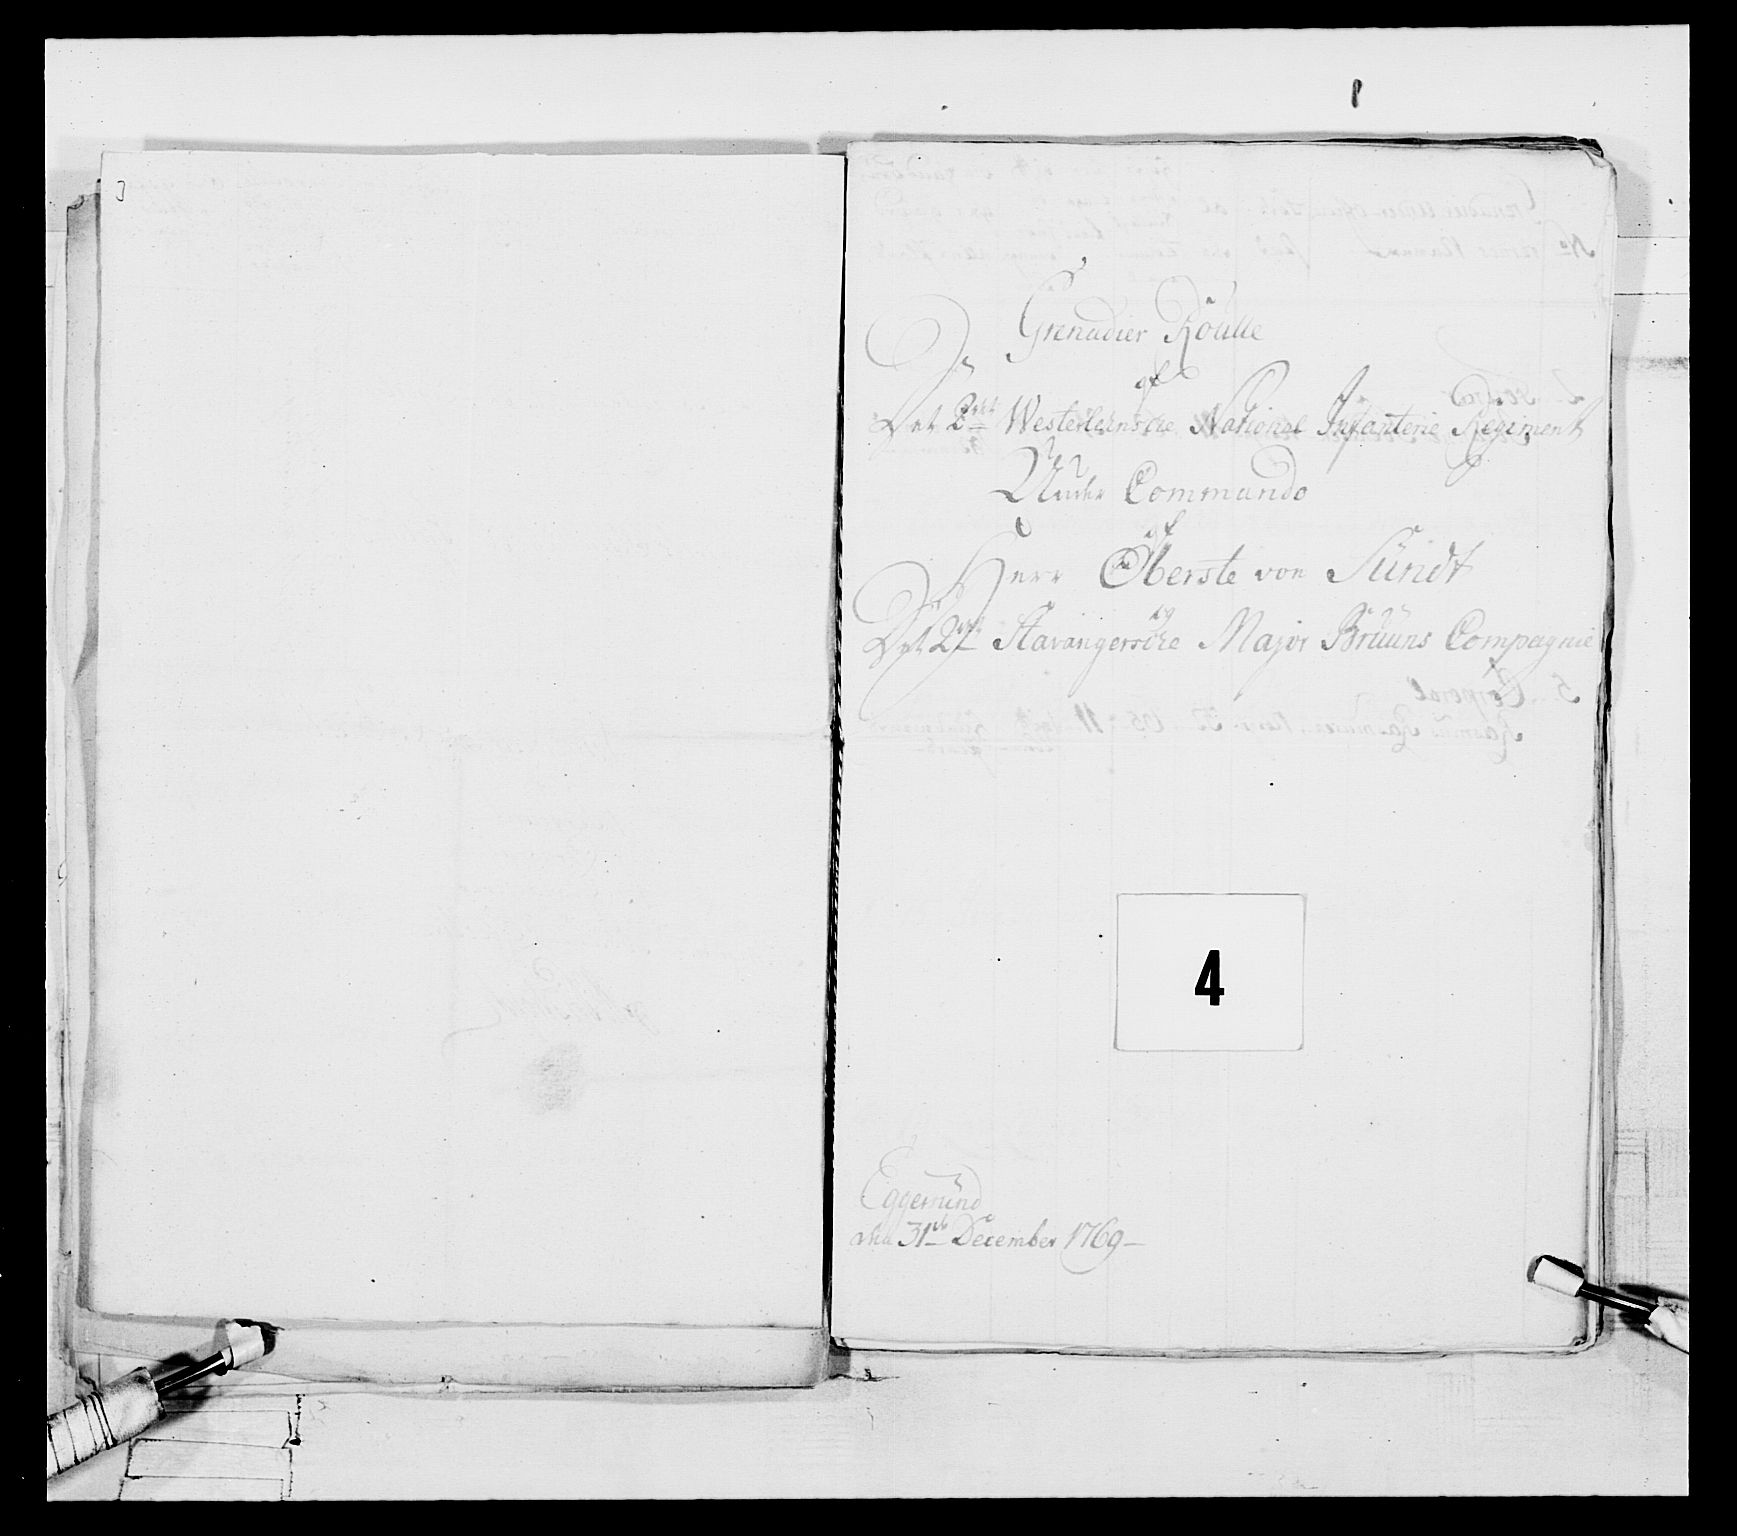 Grenadier Roulle
af
Det 2det Westerlehnsche National Infanterie Regiment
Under Commando
af
Herr Oberste von Sundt
og
Det 2det Stavangersche Major Bruuns Compagnie
4
Eggersund
den 31te December 1769